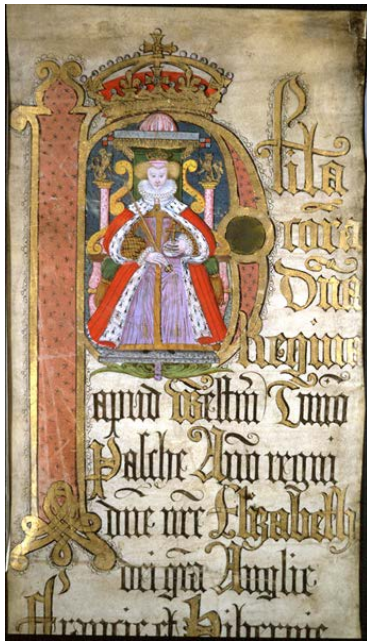 Plita
corã
Dña
Regina
apud Westm̃ Tmio
Pasche Año regni
dñe nr̃e Elizabeth
dei gr̃a Anglie
Francie et Hibernie